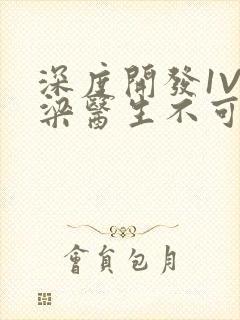 深度開發1V
梁醫生不可
會員包月